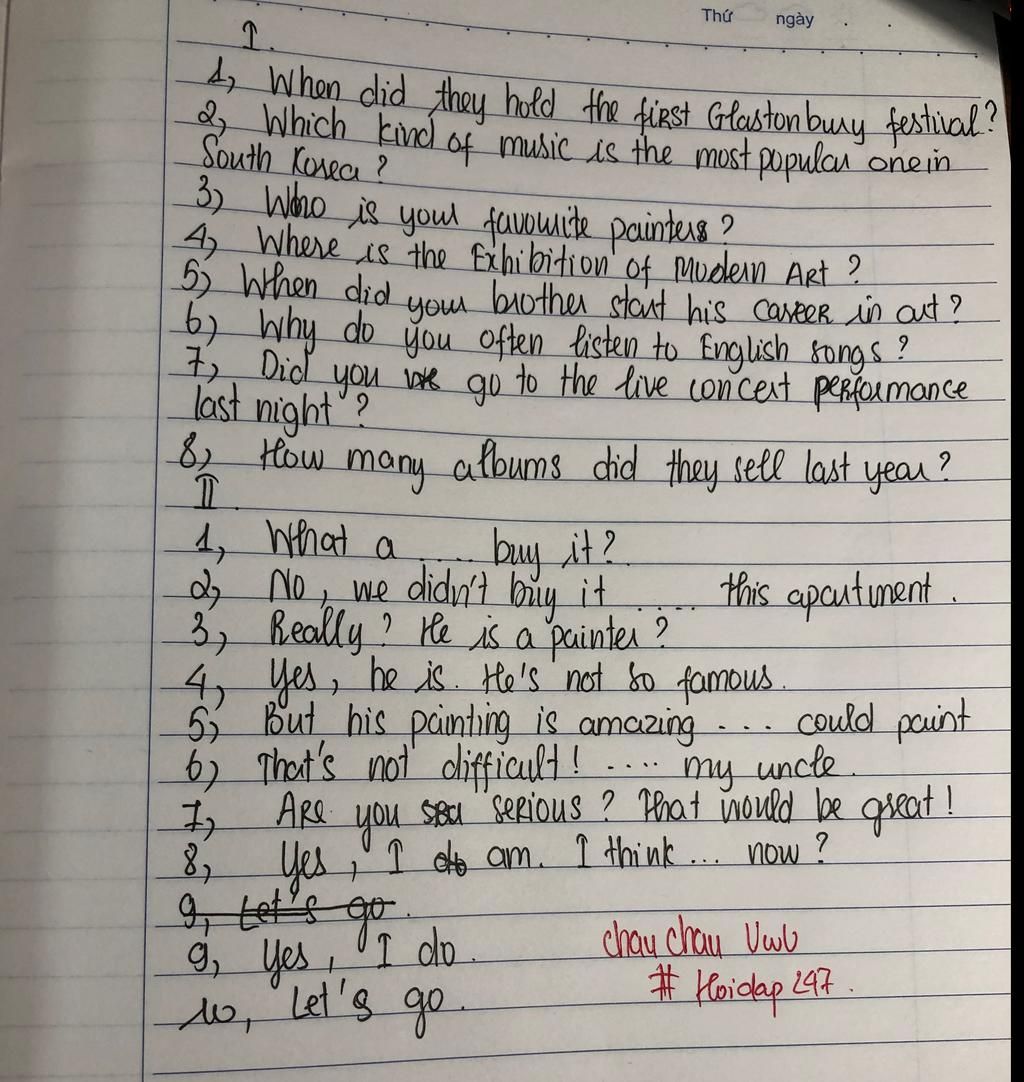 Thứ ngày . .
I.
1, When did they hold the first Glastonbury festival?
2, Which kind of music is the most popular one in
South Korea ?
3, Who is your favourite painters ?
4, Where is the Exhibition of Modern Art ?
5, When did your brother start his career in art ?
6, Why do you often listen to English songs ?
7, Did you go to the live concert performance
last night ?
8, How many albums did they sell last year ?
II
1, What a .... buy it ?
2, No, we didn't buy it ..... this apartment .
3, Really ? He is a painter ?
4, Yes, he is. He's not so famous.
5, But his painting is amazing ... could paint
6, That's not difficult ! .... my uncle.
7, Are you serious ? That would be great !
8, Yes, I am. I think ... now ?
9, Let's go.
9, Yes, I do.
10, Let's go.
chau chau UwU
# Hoidap247.